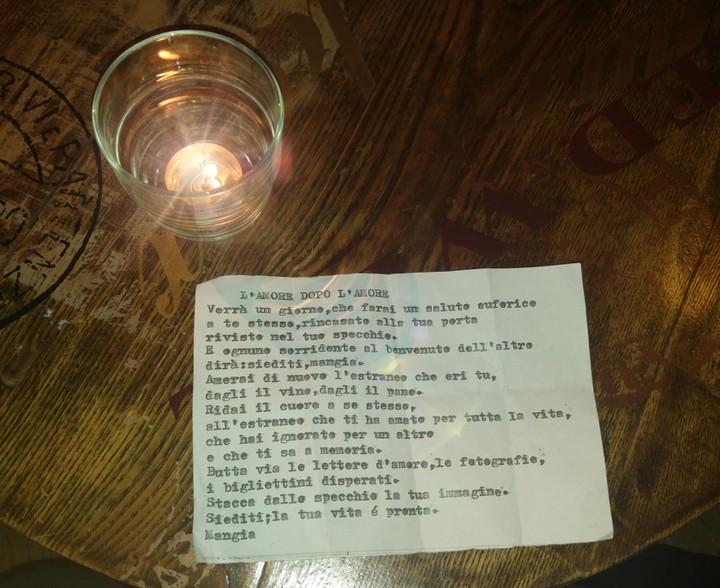 L'AMORE DOPO L'AMORE
Verrà un giorno,che farai un saluto euforico
a te stesso,rincasato alla tua porta
rivisto nel tuo specchio.
E ognuno sorridente al benvenuto dell'altro
dirà:siediti,mangia.
Amerai di nuovo l'estraneo che eri tu,
dagli il vino,dagli il pane.
Ridai il cuore a se stesso,
all'estraneo che ti ha amato per tutta la vita,
che hai ignorato per un altro
e che ti sa a memoria.
Butta via le lettere d'amore,le fotografie,
i bigliettini disperati.
Stacca dallo specchio la tua immagine.
Siediti;la tua vita é pronta.
Mangia